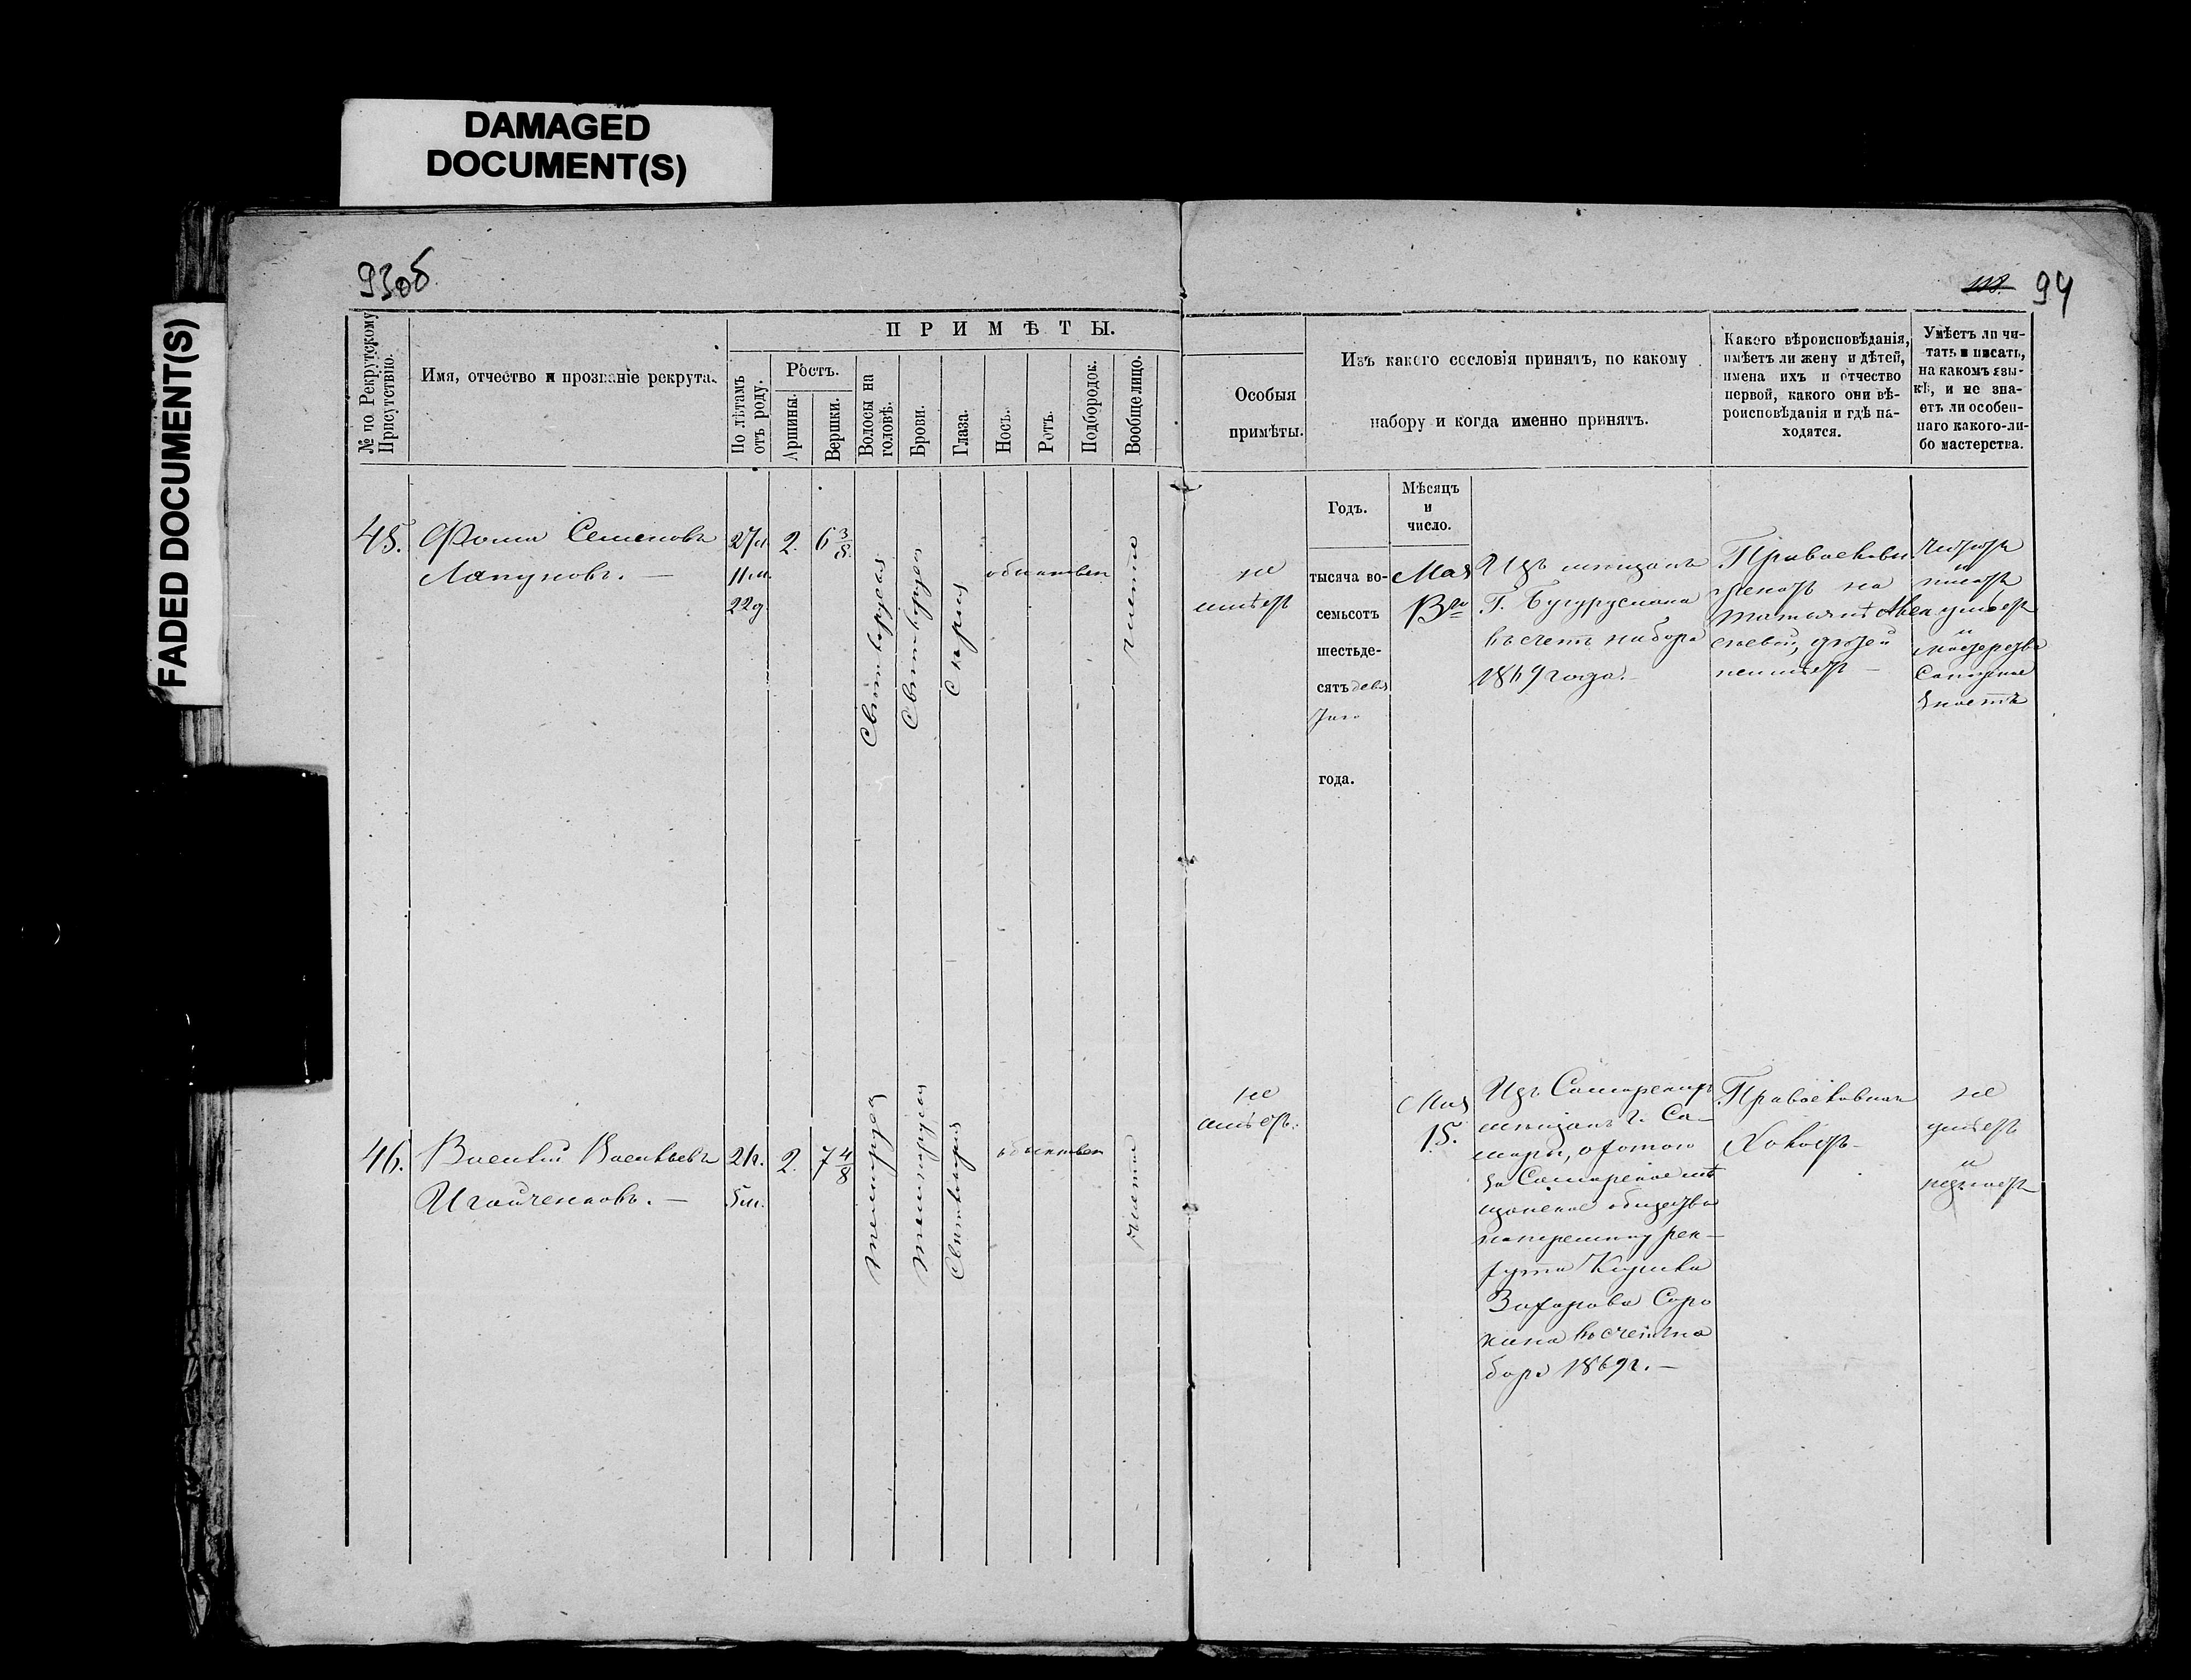 DAMAGED
DOCUMENT(S)
FADED DOCUMENT(S)
93об
118.
94
№ по Рекрутскому
Присутствію.
Имя, отчество и прозваніе рекрута.
ПРИМѢТЫ.
По лѣтамъ
отъ роду.
Ростъ.
Аршины.
Вершки.
Волосы на
головѣ.
Брови.
Глаза.
Носъ.
Ротъ.
Подбородок.
Вообще лицо.
Особыя
примѣты.
Изъ какого сословія принятъ, по какому
набору и когда именно принятъ.
Какого вѣроисповѣданія,
имѣетъ ли жену и дѣтей,
имена ихъ и отчество
первой, какого они вѣ-
роисповѣданія и гдѣ на-
ходятся.
Умѣетъ ли чи-
тать и писать,
на какомъ язы-
кѣ, и не зна-
етъ ли особен-
наго какого-ли-
бо мастерства.
Годъ.
Мѣсяцъ
и
число.
45.
Фома Семеновъ
Лапуновъ. —
27л.
11.м.
22д.
2.
6 3/8.
Свѣтлорусыя
Свѣтлорусыя
Сѣрыя
обыкновен
чистое
не
имѣетъ
тысяча во-
семьсотъ
шестьде-
сятъ девя
таго
года.
Мая
13го
Изъ мѣщанъ
г. Бугуруслана
въ счетъ набора
1869 года. —
Православн.
женатъ на
Татьянѣ Алек
сѣевой, дѣтей
неимѣетъ —
Читать
и
писать
умѣетъ
и
мастерство
Сапожное
знаетъ
46.
Василій Васильевъ
Игойченковъ. —
21г.
5м.
2.
7 4/8
Темнорус
Темнорусыя
Свѣтлокарія
обыкновен
чистое
не
имѣетъ.
Мая
15.
Изъ Самарскихъ
мѣщанъ г. Са-
мары, охотою
за Самарское мѣ
щанское общество
наперемѣну рек-
рута
Захарова Соро
кина въ счетъ на
бора 1869г. —
Православнаго
Холостъ —
не
умѣетъ
и
незнаетъ